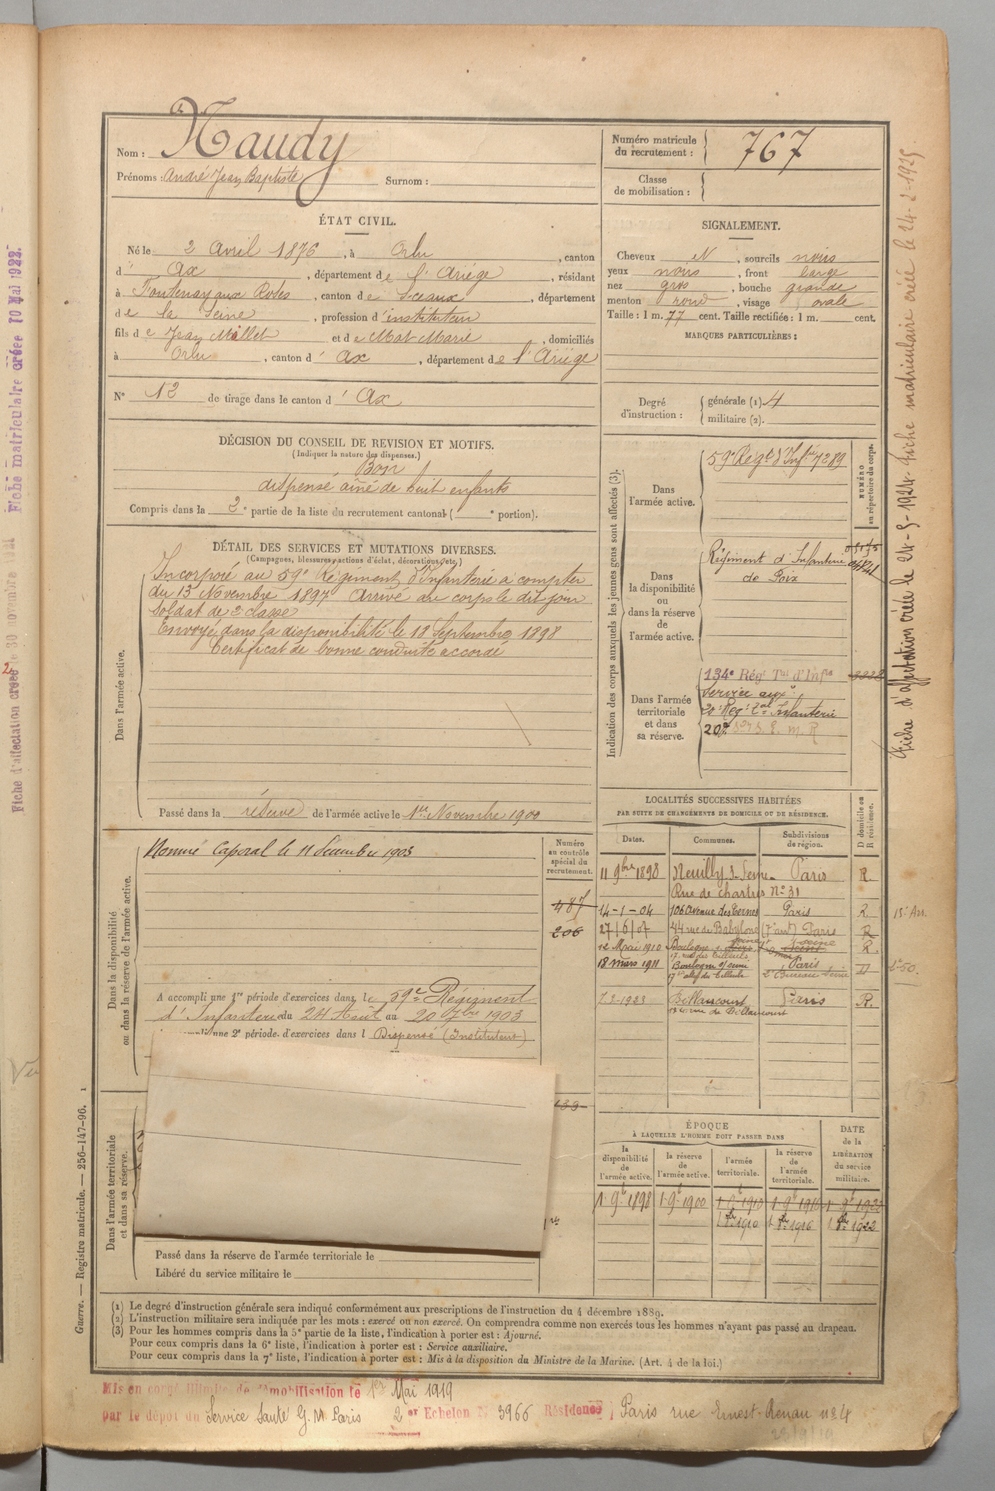 Nom : Naudy
Prénoms : André Jean Baptiste Surnom :
Numéro matricule du recrutement : 767
Classe de mobilisation :
ÉTAT CIVIL.
Né le 2 Avril 1876, à Orlu, canton
d' Ax, département de l'Ariège, résidant
à Fontenay aux Roses, canton de Sceaux, département
de la Seine, profession d'instituteur
fils de Jean Millet et de Mat Marie, domiciliés
à Orlu, canton d' Ax, département de l'Ariège
N° 12 de tirage dans le canton d' Ax
SIGNALEMENT.
Cheveux N, sourcils noirs
yeux noirs, front large
nez gros, bouche grande
menton rond, visage ovale
Taille : 1 m. 77 cent. Taille rectifiée : 1 m. cent.
MARQUES PARTICULIÈRES :
Degré d'instruction : générale (1) 4
militaire (2).
DÉCISION DU CONSEIL DE REVISION ET MOTIFS.
(Indiquer la nature des dispenses.)
Bon
dispensé aîné de huit enfants
Compris dans la 2e partie de la liste du recrutement cantonal ( e portion).
DÉTAIL DES SERVICES ET MUTATIONS DIVERSES.
(Campagnes, blessures, actions d'éclat, décorations, etc.)
Dans l'armée active.
Incorporé au 59e Régiment d'Infanterie à compter
du 13 Novembre 1897 Arrivé au corps le dit jour
Soldat de 2e classe
Envoyé dans la disponibilité le 18 Septembre 1898
Certificat de bonne conduite accordé
Passé dans la réserve de l'armée active le 1er Novembre 1900
Indication des corps auxquels les jeunes gens sont affectés (3).
NUMÉRO au répertoire du corps.
Dans l'armée active.
59e Régt d'Infie 7289
Dans la disponibilité ou dans la réserve de l'armée active.
Régiment d'Infanterie
de Foix
Dans l'armée territoriale et dans sa réserve.
134e Régt Tal d'Infie
Service auxre
20e Regt Tal Infanterie
Dans la disponibilité ou dans la réserve de l'armée active.
Nommé Caporal le 11 Décembre 1903
Numéro au contrôle spécial du recrutement.
487
206
A accompli une 1re période d'exercices dans le 59e Régiment
d'Infanterie du 24 Août au 20 7bre 1903
une 2e période d'exercices dans l Dispensé (Instituteur)
LOCALITÉS SUCCESSIVES HABITÉES
PAR SUITE DE CHANGEMENTS DE DOMICILE OU DE RÉSIDENCE.
Dates. Communes. Subdivisions de région. D domicile ou R résidence.
11 9bre 1898 Neuilly s. Seine Paris R.
Rue de chartres N° 31
14-1-04 106 Avenue des Ternes Paris R.
27/6/07 44 rue de Babylone (7e arrt) Paris R
12 Mai 1910 Boulogne s. Seine R.
17 rue des Tilleuls
18 mars 1911 Boulogne s/ Seine Paris D
17 rue des Tilleuls 2e Bureau Seine
7.2-1923 Billancourt Paris R.
rue de Billancourt
Dans l'armée territoriale et dans sa réserve.
Passé dans la réserve de l'armée territoriale le
Libéré du service militaire le
ÉPOQUE
À LAQUELLE L'HOMME DOIT PASSER DANS
la disponibilité de l'armée active. la réserve de l'armée active. l'armée territoriale. la réserve de l'armée territoriale. DATE de la LIBÉRATION du service militaire.
1 9e 1898 1 9e 1900 1 9e 1910 1 9e 1916 1 9e 1922
1 8bre 1910 1 8bre 1916 1 8bre 1922
(1) Le degré d'instruction générale sera indiqué conformément aux prescriptions de l'instruction du 4 décembre 1889.
(2) L'instruction militaire sera indiquée par les mots : exercé ou non exercé. On comprendra comme non exercés tous les hommes n'ayant pas passé au drapeau.
(3) Pour les hommes compris dans la 5e partie de la liste, l'indication à porter est : Ajourné.
Pour ceux compris dans la 6e liste, l'indication à porter est : Service auxiliaire.
Pour ceux compris dans la 7e liste, l'indication à porter est : Mis à la disposition du Ministre de la Marine. (Art. 4 de la loi.)
Mis en congé illimité de démobilisation le 1er Mai 1919
par le dépôt du Service Santé G. M. Paris 2er Echelon N° 3966 Résidence, Paris rue Ernest-Renan n° 4
23/9/19
Guerre. — Registre matricule. — 256-147-96.
Fiche d'affectation créée le 30 novembre Fiche matriculaire créée 10 Mai 1922.
Fiche d'affectation créée le 24-5-1924. Fiche matriculaire créée le 24-2-1925.